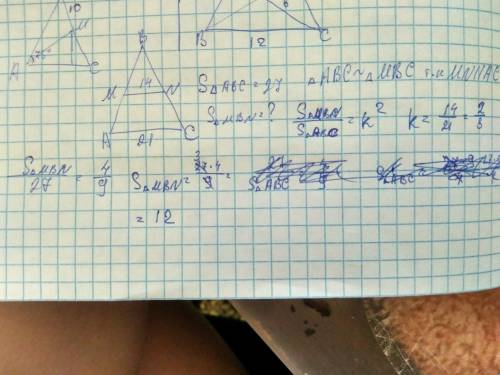 10
A 75° C
M
B C
12
6
B
M 14 N
A 21 C
S△ABC = 27 △ABC ~ △MBC т.к MN||AC
S△MBN = ? S△MBN/S△ABC = k² k = 14/21 = 2/3
S△MBN/27 = 4/9 S△MBN = 27·4/9 =
= 12